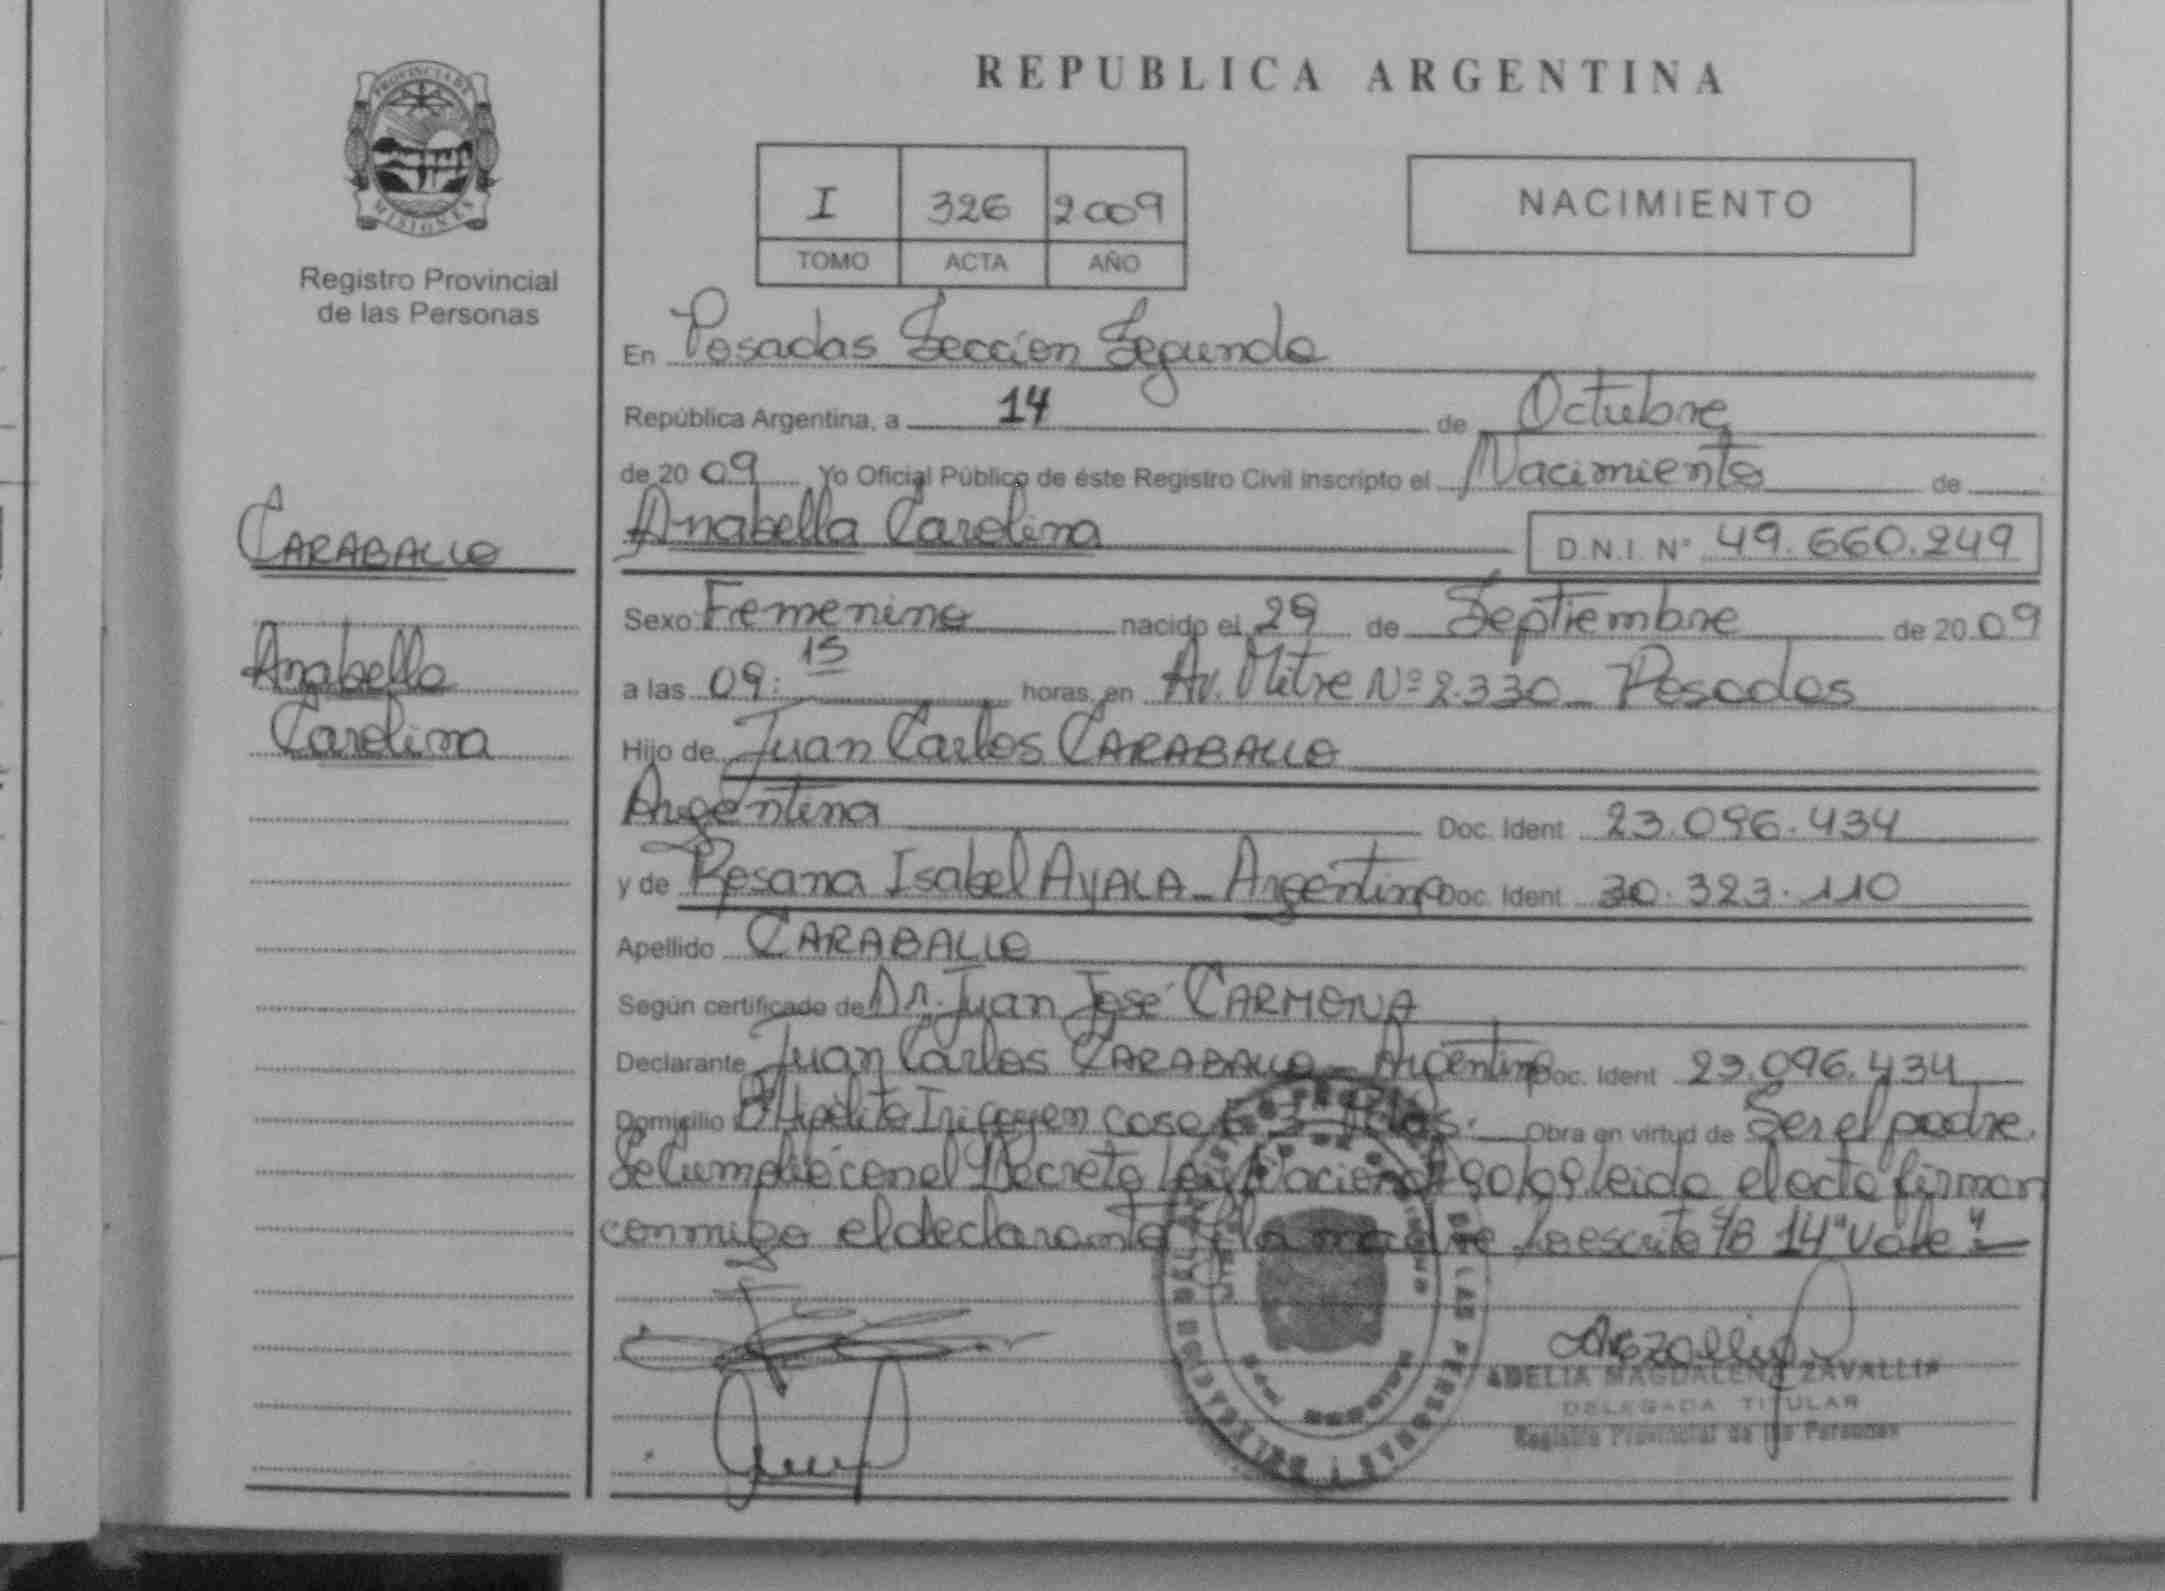 REPUBLICA ARGENTINA
PROVINCIA DE
MISIONES
Registro Provincial
de las Personas
I 326 2009
TOMO ACTA AÑO
NACIMIENTO
En Posadas Sección Segunda
República Argentina, a 14 de Octubre
de 2009 Yo Oficial Público de éste Registro Civil inscripto el Nacimiento de
CARABALLO
Anabella Carolina D.N.I. Nº 49.660.249
Sexo Femenino nacido el 29 de Septiembre de 2009
Anabella
a las 09:15 horas, en Av. Mitre Nº 2.330 - Posadas
Carolina
Hijo de Juan Carlos CARABALLO
Argentina Doc. Ident 23.096.434
y de Rosana Isabel AYALA - Argentina Doc. Ident 30.323.110
Apellido CARABALLO
Según certificado de Dr. Juan José CARMONA
Declarante Juan Carlos CARABALLO - Argentino Doc. Ident 23.096.434
Domicilio Hipólito Irigoyen casa Obra en virtud de Ser el padre.
Se Cumplió con el Decreto Ley Nacional 90/09 leida el acta firman
conmigo el declarante y la madre Lo escrito s/b 14 "Vale"
ADELIA MAGDALENA ZAVALLIP
DELEGADA TITULAR
Registro Provincial de las Personas